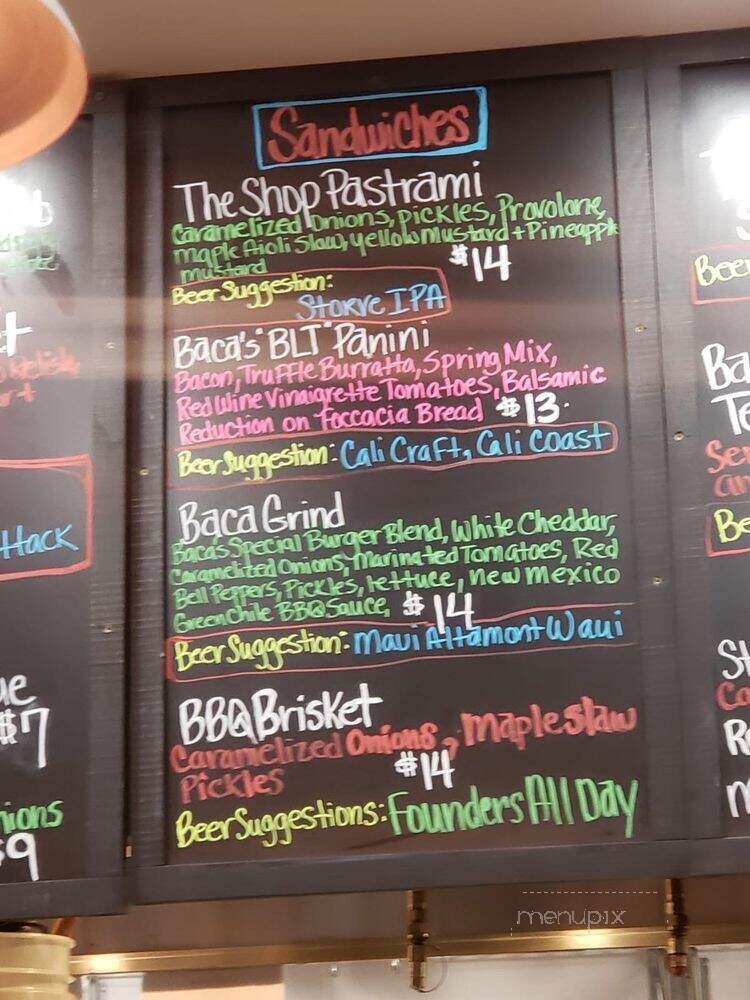 Sandwiches
The Shop Pastrami
Caramelized Onions, pickles, Provolone,
maple Aioli Slaw, yellow mustard + Pineapple
mustard
$14
Beer Suggestion:
Storve IPA
Baca's "BLT" Panini
Bacon, Truffle Burratta, Spring Mix,
Red Wine Vinaigrette Tomatoes, Balsamic
Reduction on foccacia Bread $13.
Beer Suggestion: Cali Craft, Cali Coast
Baca Grind
Baca's Special Burger Blend, White Cheddar,
Caramelized Onions, Marinated Tomatoes, Red
Bell Peppers, Pickles, lettuce, new mexico
Green Chile BBQ Sauce, $14
Beer Suggestion: Maui Altamont Waui
BBQ Brisket
Caramelized Onions, maple slaw
Pickles
$14
Beer Suggestions: Founders All Day
Hack
$7
$9
Beer
Ba
menupix